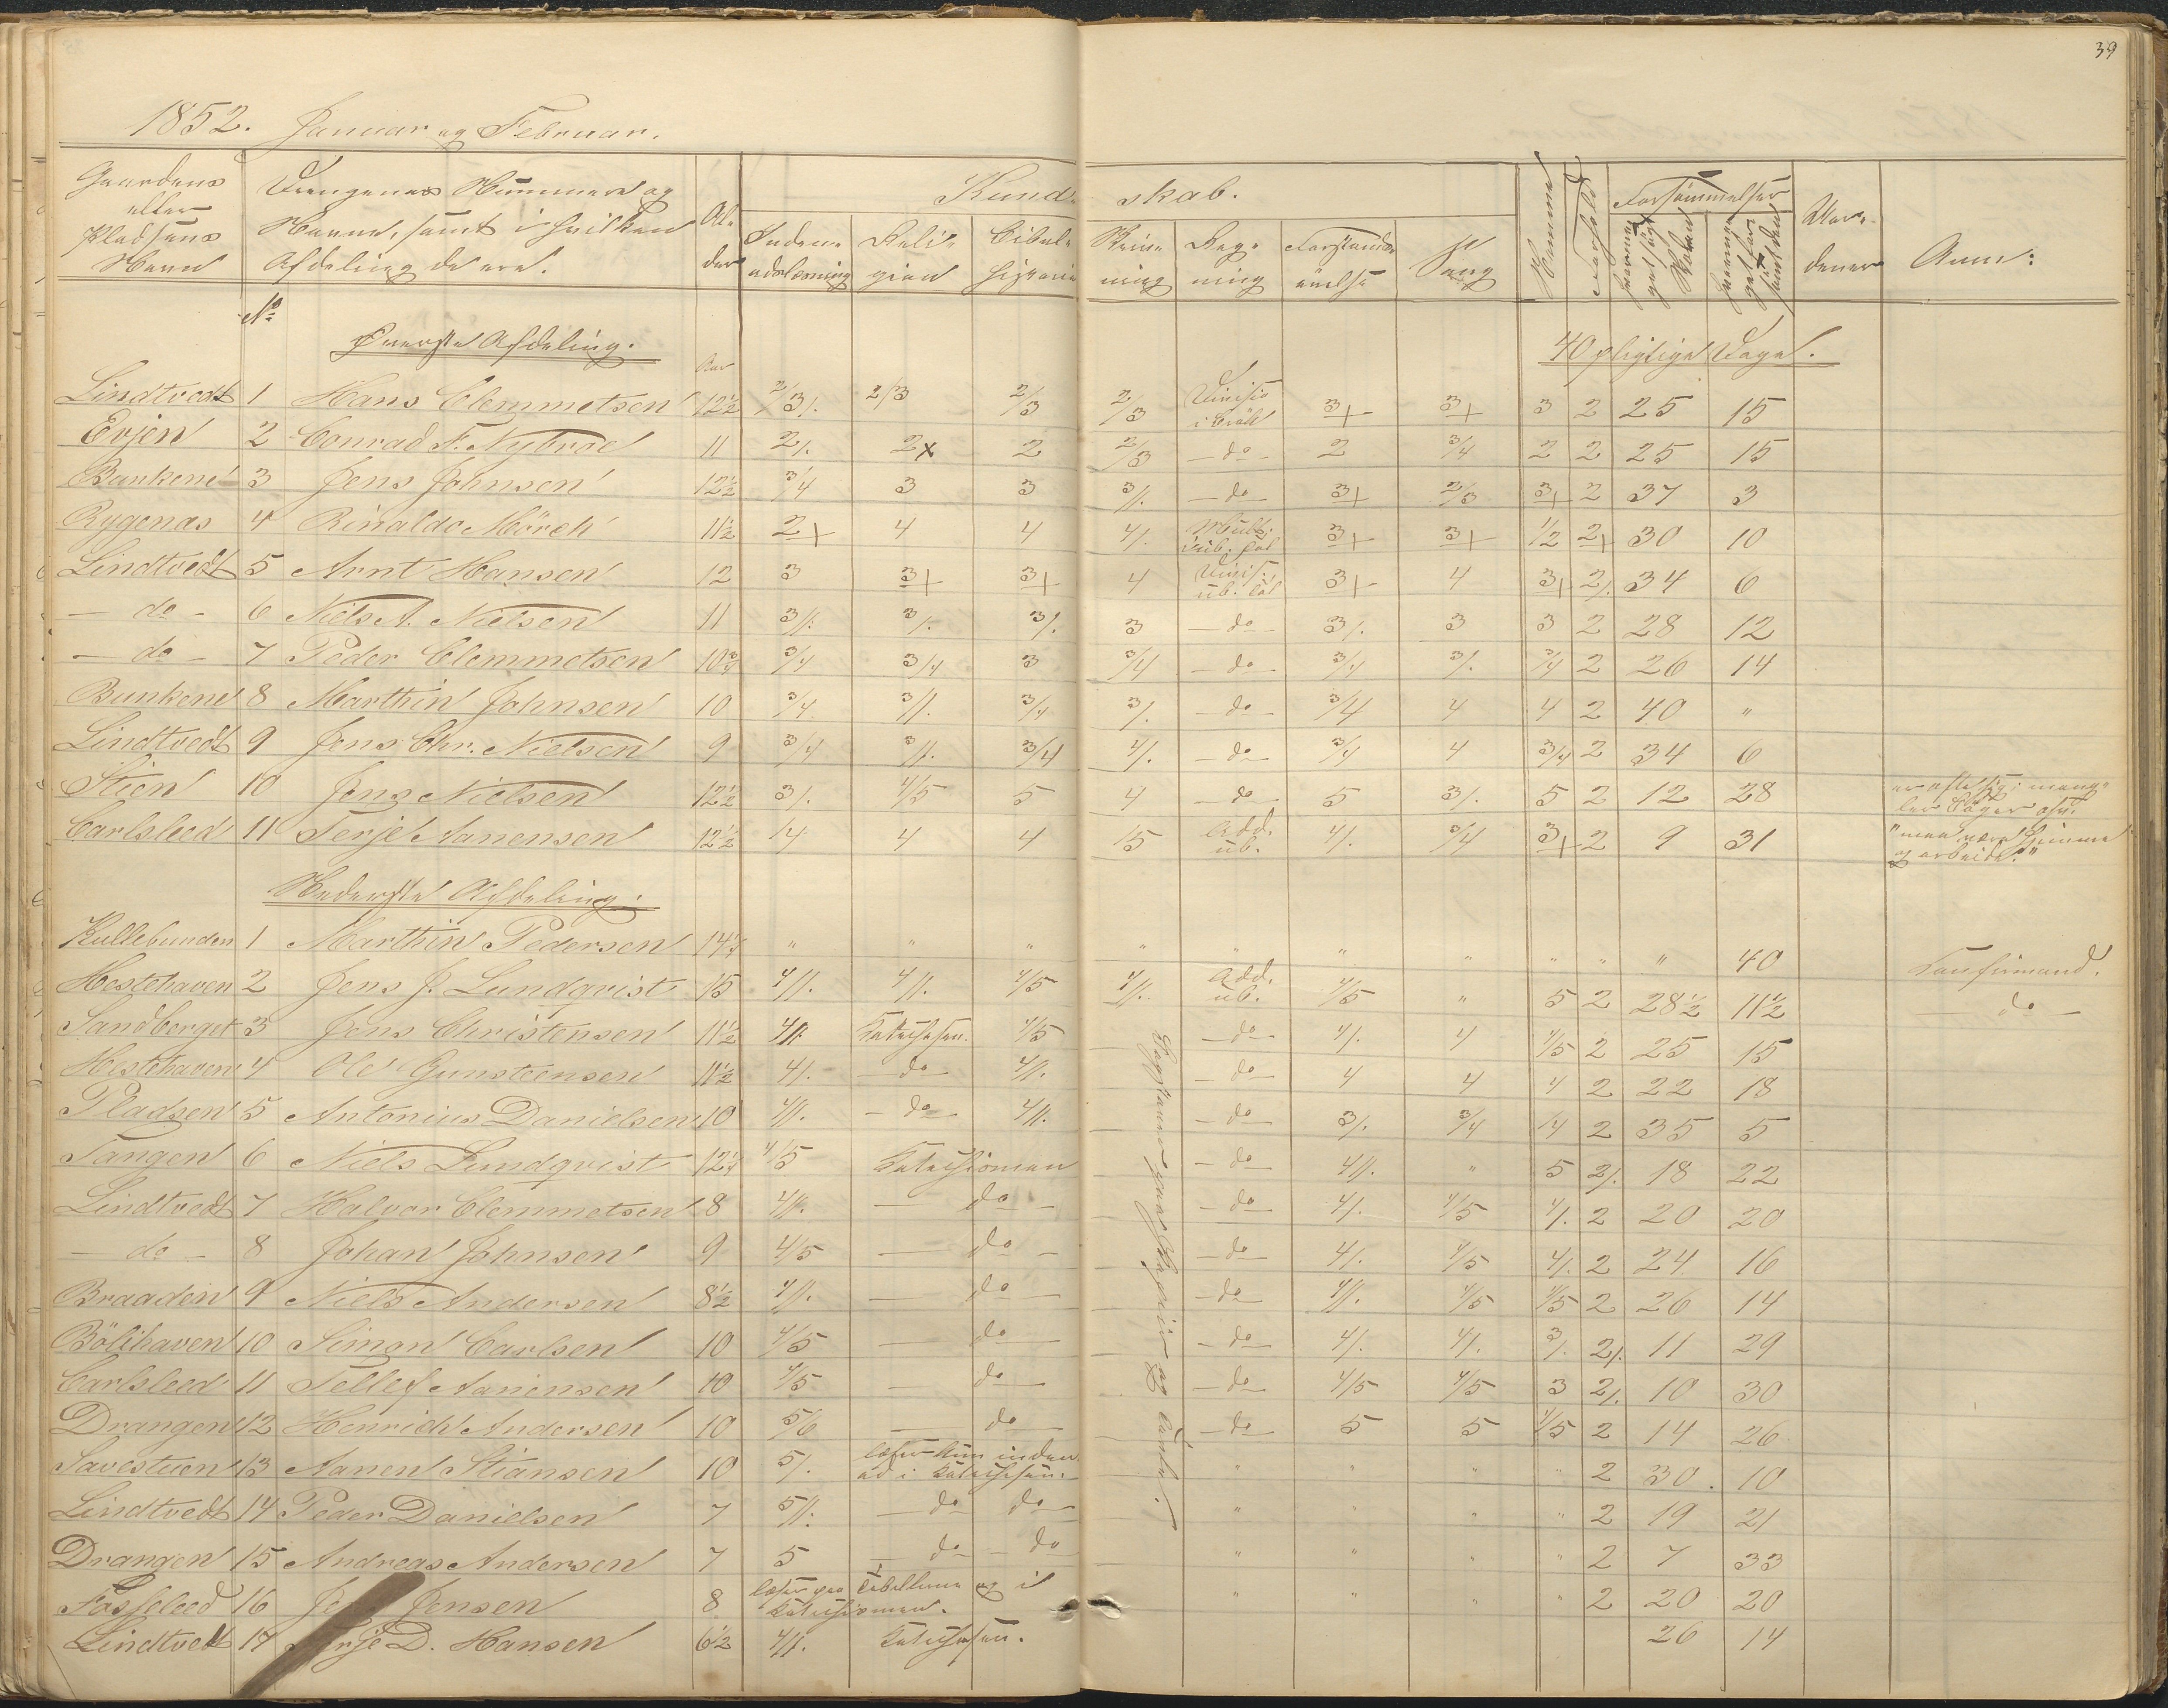 39
1852. Januar og Februar.
Gaardens eller Pladsens Navn | Drengenes Nummere og Navne, samt i hvilken Afdeling de ere. | Alder | Kundskab. | Forsømmelser | Anm:
Indenadslæsning | Religion | Bibelhistorie | Skrivning | Regning | Forstandsøvelse | Sang | Nemme | Forhold
No
Øverste Afdeling. 40 pligtige Dage.
Aar
Lindtvedt 1 Hans Clemmetsen 12½ 2/3/. 2/3 2/3 2/3 Divisio i Brök 3+ 3+ 3 2 25 15
Evjen 2 Conrad F. Nybroe 11 2/. 2x 2 2/3 - do - 2 3/4 2 2 25 15
Bankene 3 Jens Johnsen 12½ 3/4 3 3 3//. - do - 3+ 2/3 3+ 2 37 3
Rygenæs 4 Rinaldo Mörch 11½ 2+ 4 4 4/. 3+ 3+ 1/2 2+ 30 10
Lindtvedt 5 Arnt Hansen 12 3 3+ 3+ 4 Divis. 3+ 4 3+ 2/. 34 6
- do - 6 Niels A. Nielsen 11 3//. 3/. 3/. 3 - do - 3/. 3 3 2 28 12
- do - 7 Peder Clemmetsen 10¾ 3/4 3/4 3 3/4 - do - 3/4 3/. 3/4 2 26 14
Bunkene 8 Marthin Johnsen 10 3/4 3//. 3/4 3/. - do - 3/4 4 4 2 40 "
Lindtvedt 9 Jens Chr. Nielsen 9 3/4 3//. 3/4 4/. - do - 3/4 4 3/4 2 34 6
Stien 10 Jens Nielsen 12½ 3/. 4/5 5 4 - do - 5 3/. 5 2 12 28
Carlsleed 11 Terje Aanensen 12½ 4 4 4 5 Add. ub. 4/. 3/4 3+ 2 9 31 og arbeide."
Nederste Afdeling.
Kullebunden 1 Marthin Pedersen 14¼ " " " " " " " " " " 40 Konfirmand.
Hestehaven 2 Jens J. Lundqvist 15 4//. 4//. 4/5 4//. Add. ub. 4/5 " 5 2 28½ 11½ - do -
Sandberget 3 Jens Christensen 11½ 4//. 4/5 - do - 4/. 4 4/5 2 25 15
Hestehaven 4 Ole Gunsteensen 11½ 4/. - do - 4//. - do - 4 4 4 2 22 18
Pladsen 5 Antonius Danielsen 10 4//. - do - 4//. - do - 3/. 3/4 4 2 35 5
Tangen 6 Niels Lundqvist 12¼ 4/5 Katechismen - do - 4//. " 5 2/. 18 22
Lindtvedt 7 Halvor Clemmetsen 8 4//. - do - - do - 4/. 4/5 4/. 2 20 20
- do - 8 Johan Johnsen 9 4/5 - do - - do - 4/. 4/5 4/. 2 24 16
Braaden 9 Niels Andersen 8½ 4//. - do - - do - 4//. 4/5 4/5 2 26 14
Bölihaven 10 Simon Carlsen 10 4/5 - do - - do - 4/. 4/. 3/. 2/. 11 29
Carlsleed 11 Tellef Aanensen 10 4/5 - do - - do - 4/5 4/5 3 2/. 10 30
Drangen 12 Henrich Andersen 10 5/6 - do - - do - 5 5 4/5 2 14 26
Savestuen 13 Aanen Stiansen 10 5/. læser kun indenad i " " " " 2 30. 10
Lindtvedt 14 Peder Danielsen 7 5//. - do - do - " " " " 2 19 21
Drangen 15 Andreas Andersen 7 5 - do - do " " " " 2 7 33
Fosseleed 16 Jensen 8 læser paa Tabellerne og i Katechismen. " " " " 2 20 20
Lindtvedt 17 Terje D. Hansen 6½ 4//. 26 14